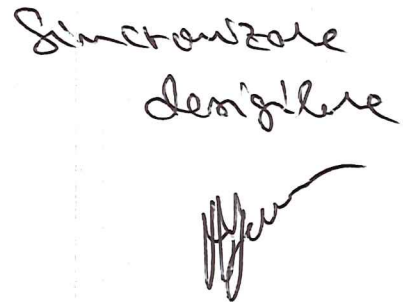 Sincronizare
desigilare